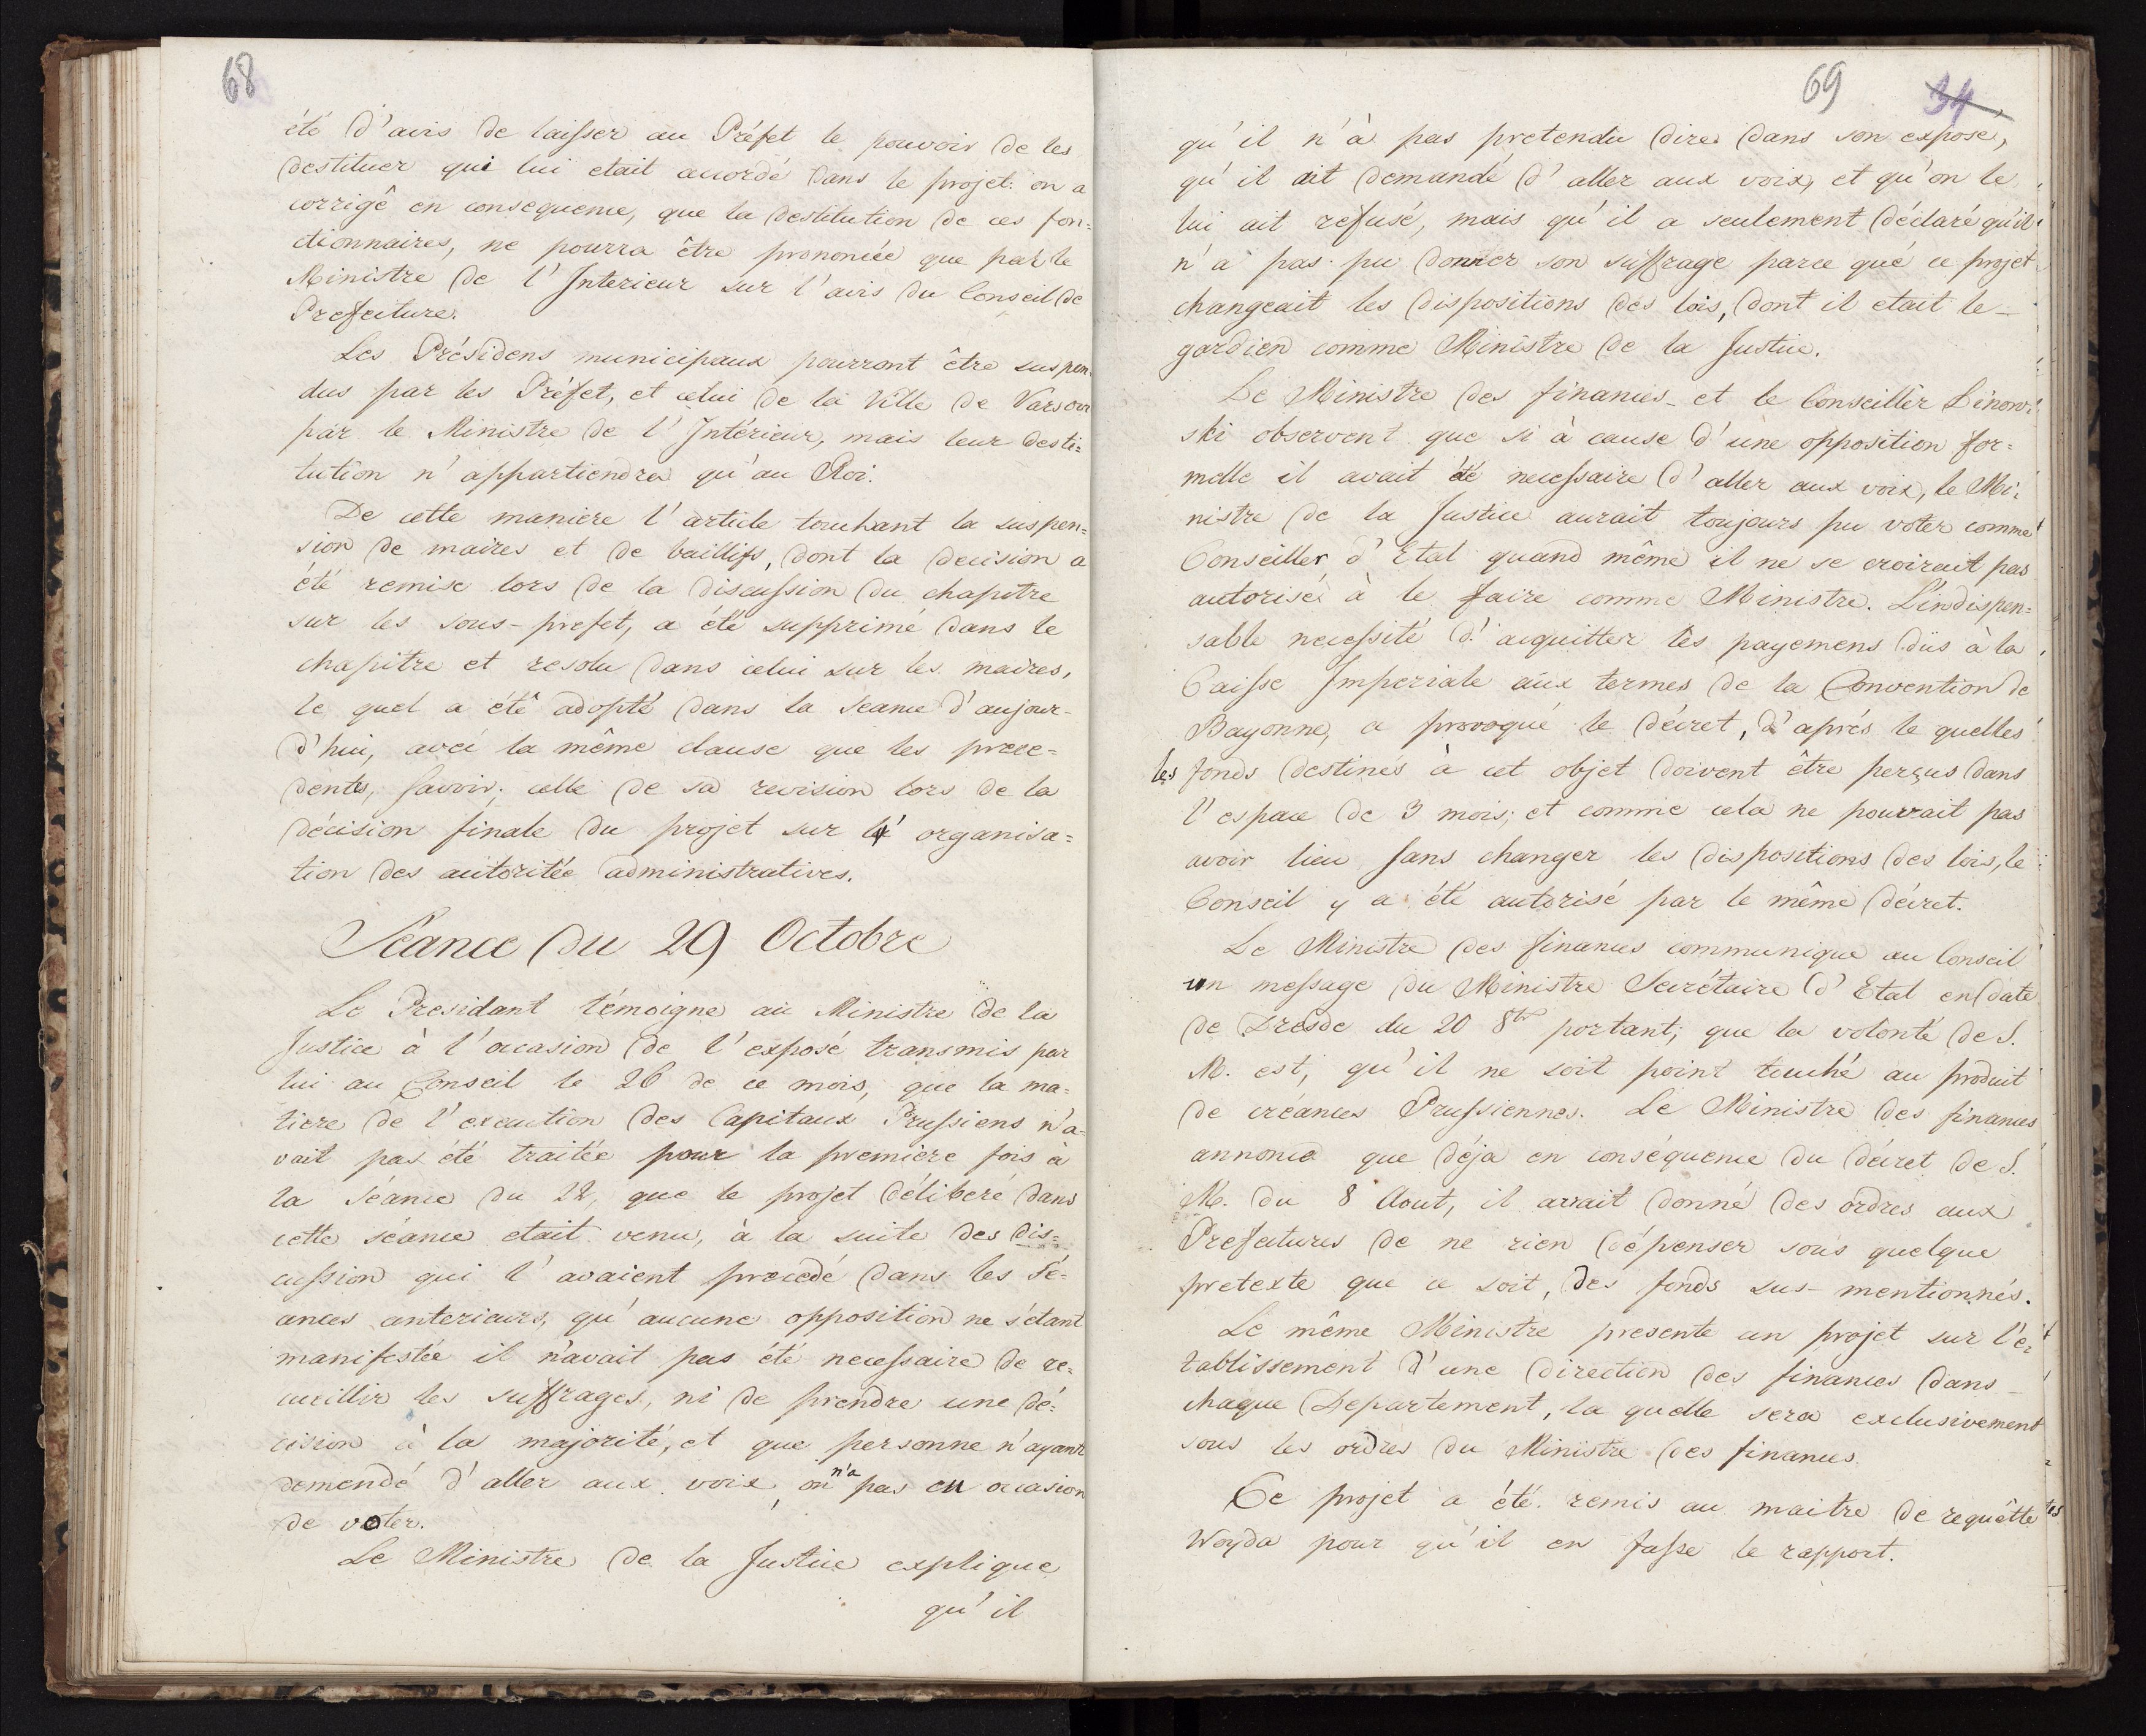 68
été d'avis de laisser au Préfet le pouvoir de les
destituer qui lui etait accordé dans le projet: on a
corrigê en consequence, que la destitution de ces fon=
ctionnaires, ne pourra être prononcée que par le
Ministre de l'Interieur sur l'avis du Conseil de
Prefecture.
Les Présidens municipaux pourront être suspen=
dus par les Préfet, et celui de la Ville de Varsovie
par le Ministre de l'Intérieur, mais leur desti=
tution n'appartiendra qu'au Roi.
De cette maniere l'article touchant la suspen=
sion de maires et de baillifs, dont la decision a
été remise lors de la discussion du chapitre
sur les sous-prefet, a été supprimé dans le
chapitre et resolu dans celui sur les maires,
le quel a étê adopté dans la seance d'aujour-
d'hui, avec la même clause que les prece=
dents, savoir; celle de sa revision lors de la
décision finale du projet sur l' organisa=
tion des autoritée administratives.
Séance du 29 Octobre
Le Presidant témoigne au Ministre de la
Justice à l'occasion de l'exposé transmis par
lui au Conseil le 26 de ce mois, que la ma=
tiere de l'execution des Capitaux Prussiens n'a=
vait pas été traitée pour la premiere fois à
la Séance du 22, que le projet déliberé dans
cette séance etait venu, à la suite des dis=
cussion qui l'avaient precedé dans les Sé=
ances anterieurs, qu'aucune opposition ne s'étant
manifestée il n'avait pas été necessaire de re=
cueillir les suffrages, ni de prendre une dé=
cision à la majorité, et que personne n'ayant
demendé d'aller aux voix, on n'a pas eu occasion
de voter.
Le Ministre de la Justice explique
qu'il
69 34
qu'il n'à pas pretendu dire dans son exposé,
qu'il ait demandé d'aller aux voix, et qu'on le
lui ait refusé, mais qu'il a seulement déclaré qu'il
n'a pas pu donner son suffrage parce que ce projet
changeait les dispositions des lois, dont il etait le
gardien comme Ministre de la Justice.
Le Ministre des finances et le Conseiller Linow=
ski observent que si à cause d'une opposition for=
melle il avait été necessaire d'aller aux voix, le Mi=
nistre de la Justice aurait toujours pu voter comme
Conseiller d'Etat quand même il ne se croirait pas
autorisé à le faire comme Ministre. L'indispen=
sable necessité d'acquitter les payemens dûs à la
Caisse Imperiale aux termes de la Convention de
Bayonne, a provoqué le décret, d'aprés le quelles
les fonds destinés à cet objet doivent être perçus dans
l'espace de 3 mois; et comme cela ne pourrait pas
avoir lieu sans changer les dispositions des lois, le
Conseil y a été autorisé par le même décret.
Le Ministre des finances communique au Conseil
un message du Ministre Secrétaire d'Etat en date
de Dresde du 20 8bre portant, que la volonté de S.
M. est, qu'il ne soit point touché au produit
de créances Prussiennes. Le Ministre des finances
annonce que déja en conséquence du décret de S.
M. du 8 Aout, il avait donné des ordres aux
Prefectures de ne rien dépenser sous quelque
pretexte que ce soit, des fonds sus-mentionnés.
Le même Ministre presente un projet sur l'é=
tablissement d'une direction des finances dans
chaque Departement, la quelle sera exclusivement
sous les ordres du Ministre des finances.
Ce projet a été remis au maitre de requêttes
Woyda pour qu'il en fasse le rapport.